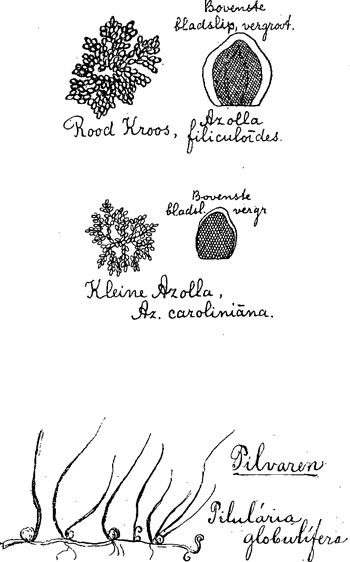 Bovenste
bladslip, vergroot.
Rood Kroos, Azolla
filiculoïdes.
Bovenste
bladsl. vergr
Kleine Azolla,
Az. caroliniāna.
Pilvaren
Pilulária
globulífera